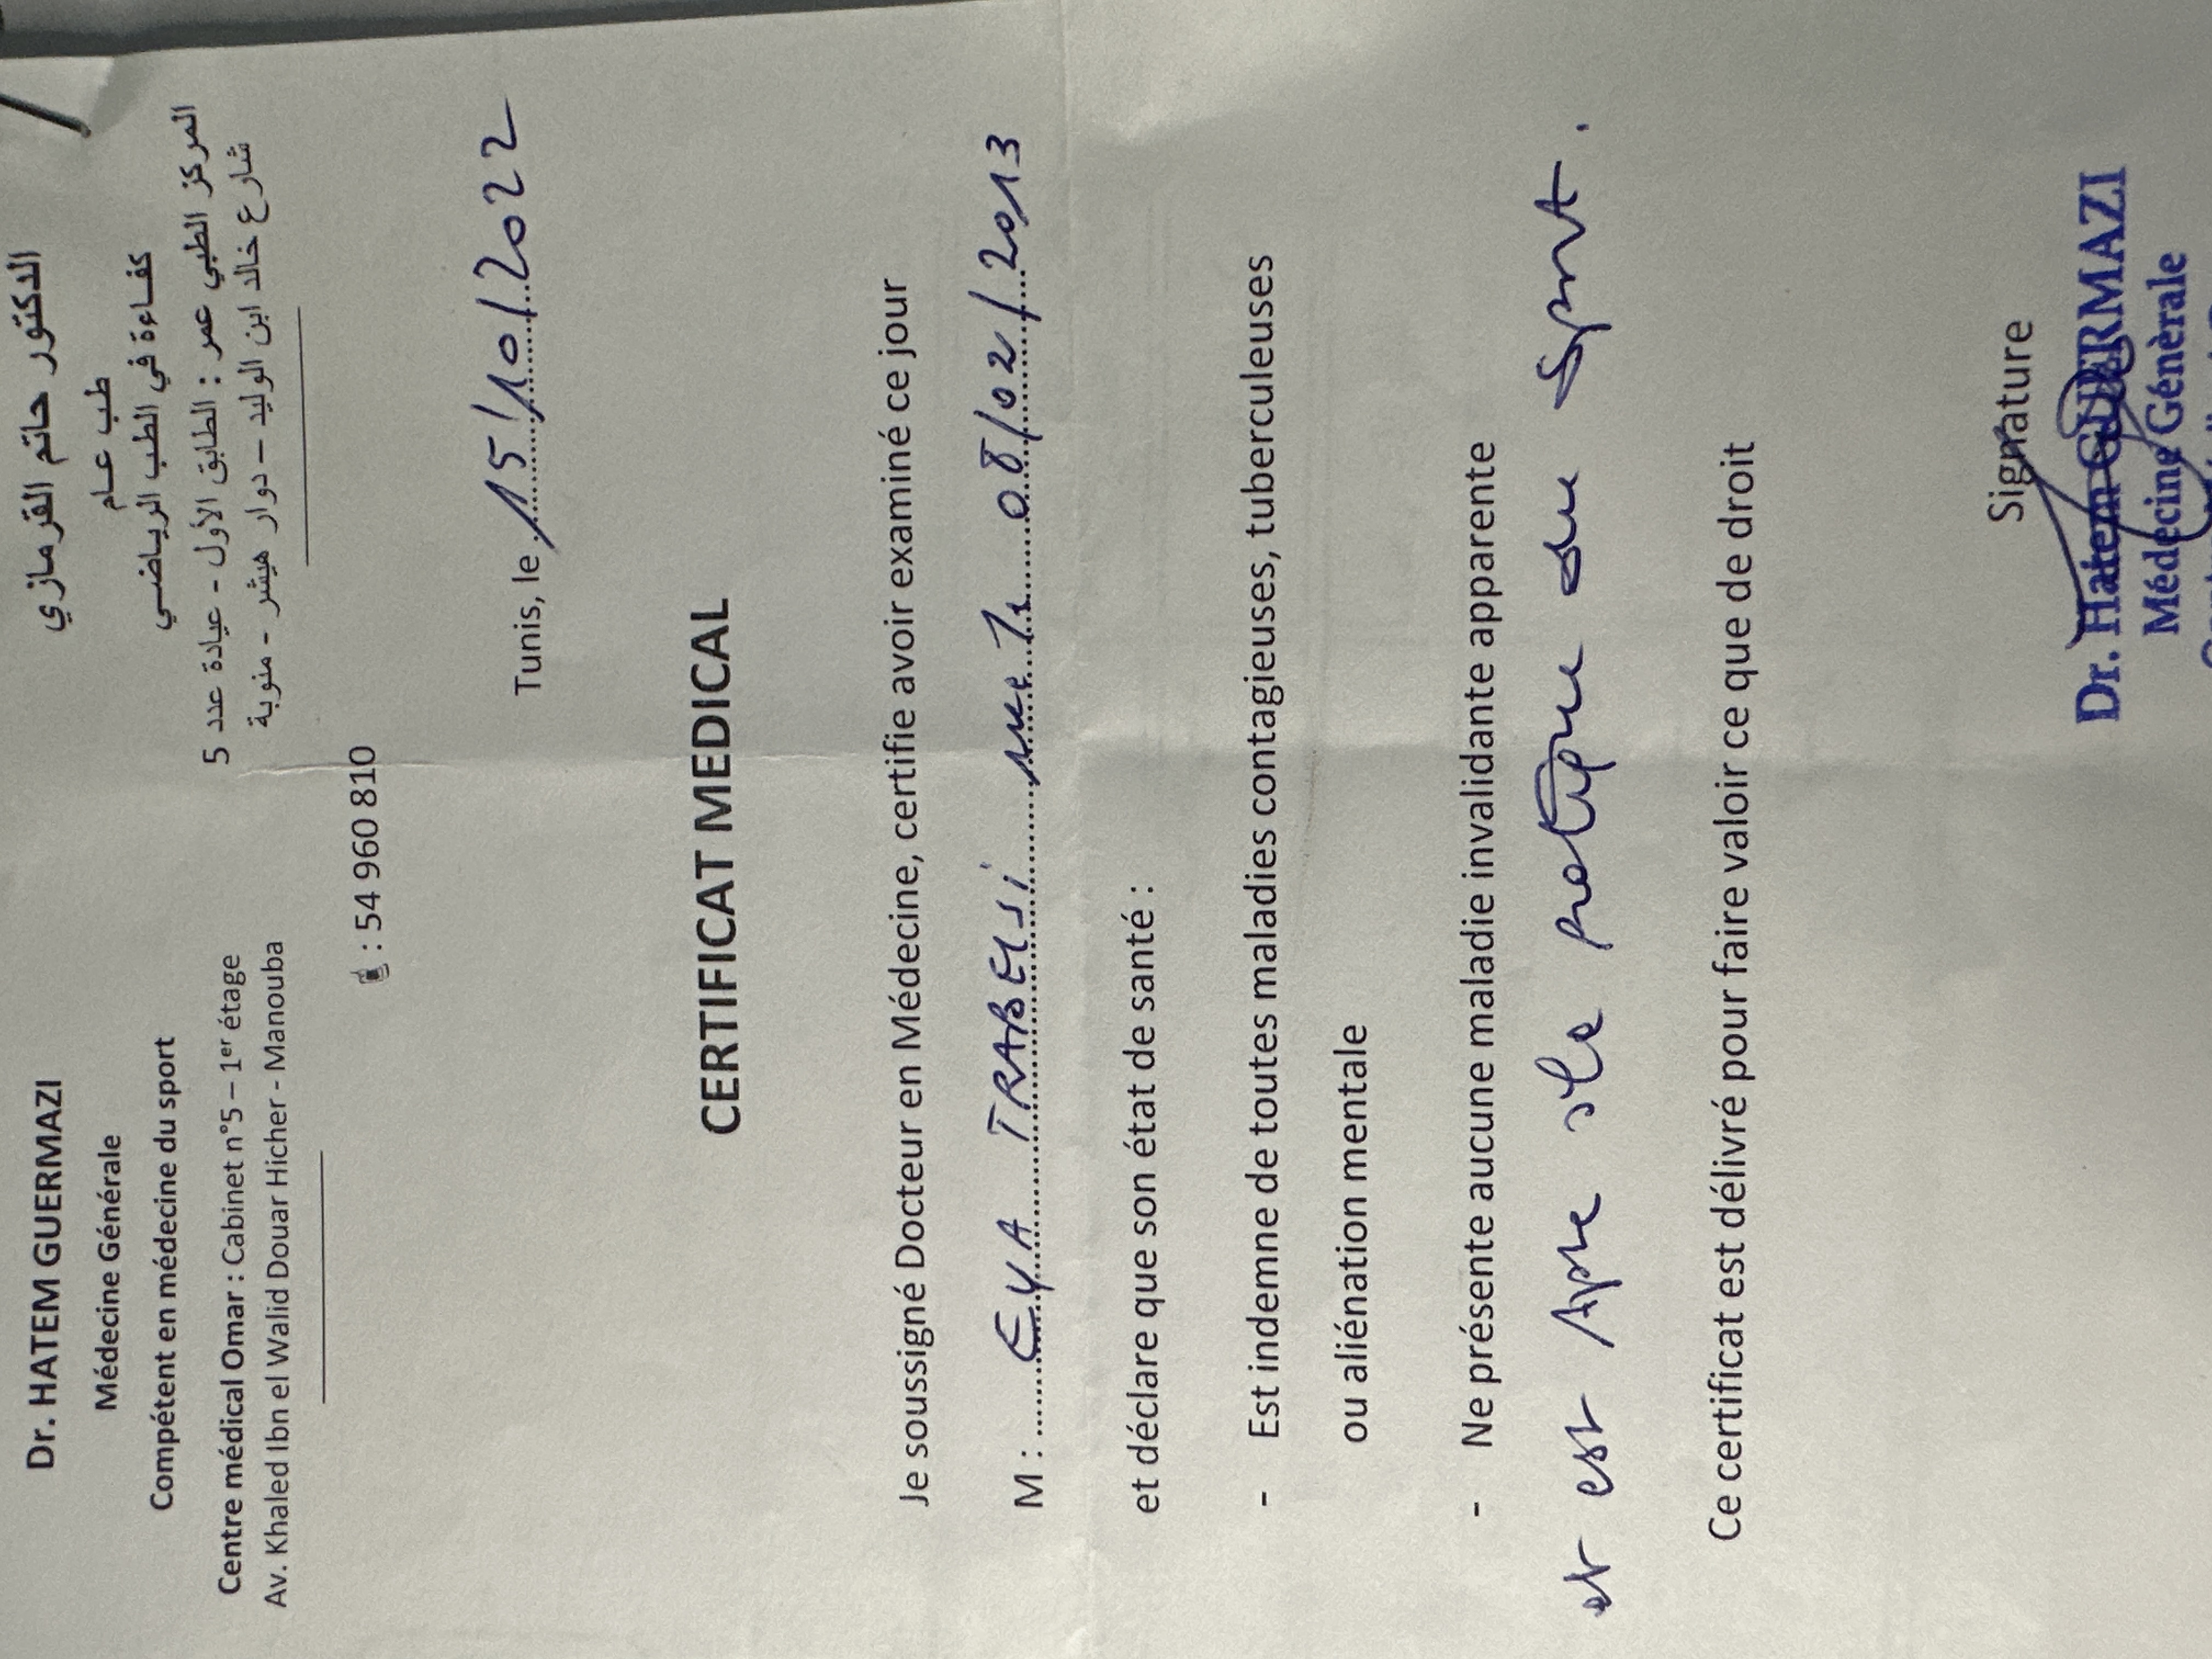 Dr. HATEM GUERMAZI
Médecine Générale
Compétent en médecine du sport
Centre médical Omar : Cabinet n°5 – 1er étage
Av. Khaled Ibn el Walid Douar Hicher - Manouba
الدكتور حاتم القرمازي
طب عام
كفاءة في الطب الرياضي
المركز الطبي عمر : الطابق الأول - عيادة عدد 5
شارع خالد ابن الوليد – دوار هيشر - منوبة
: 54 960 810
Tunis, le 15/10/2022
CERTIFICAT MEDICAL
Je soussigné Docteur en Médecine, certifie avoir examiné ce jour
M : EYA TRABELSI 08/02/2013
et déclare que son état de santé :
- Est indemne de toutes maladies contagieuses, tuberculeuses
ou aliénation mentale
- Ne présente aucune maladie invalidante apparente
et est Apte pratique du Sport.
Ce certificat est délivré pour faire valoir ce que de droit
Signature
Dr. Hatem GUERMAZI
Médecine Génèrale